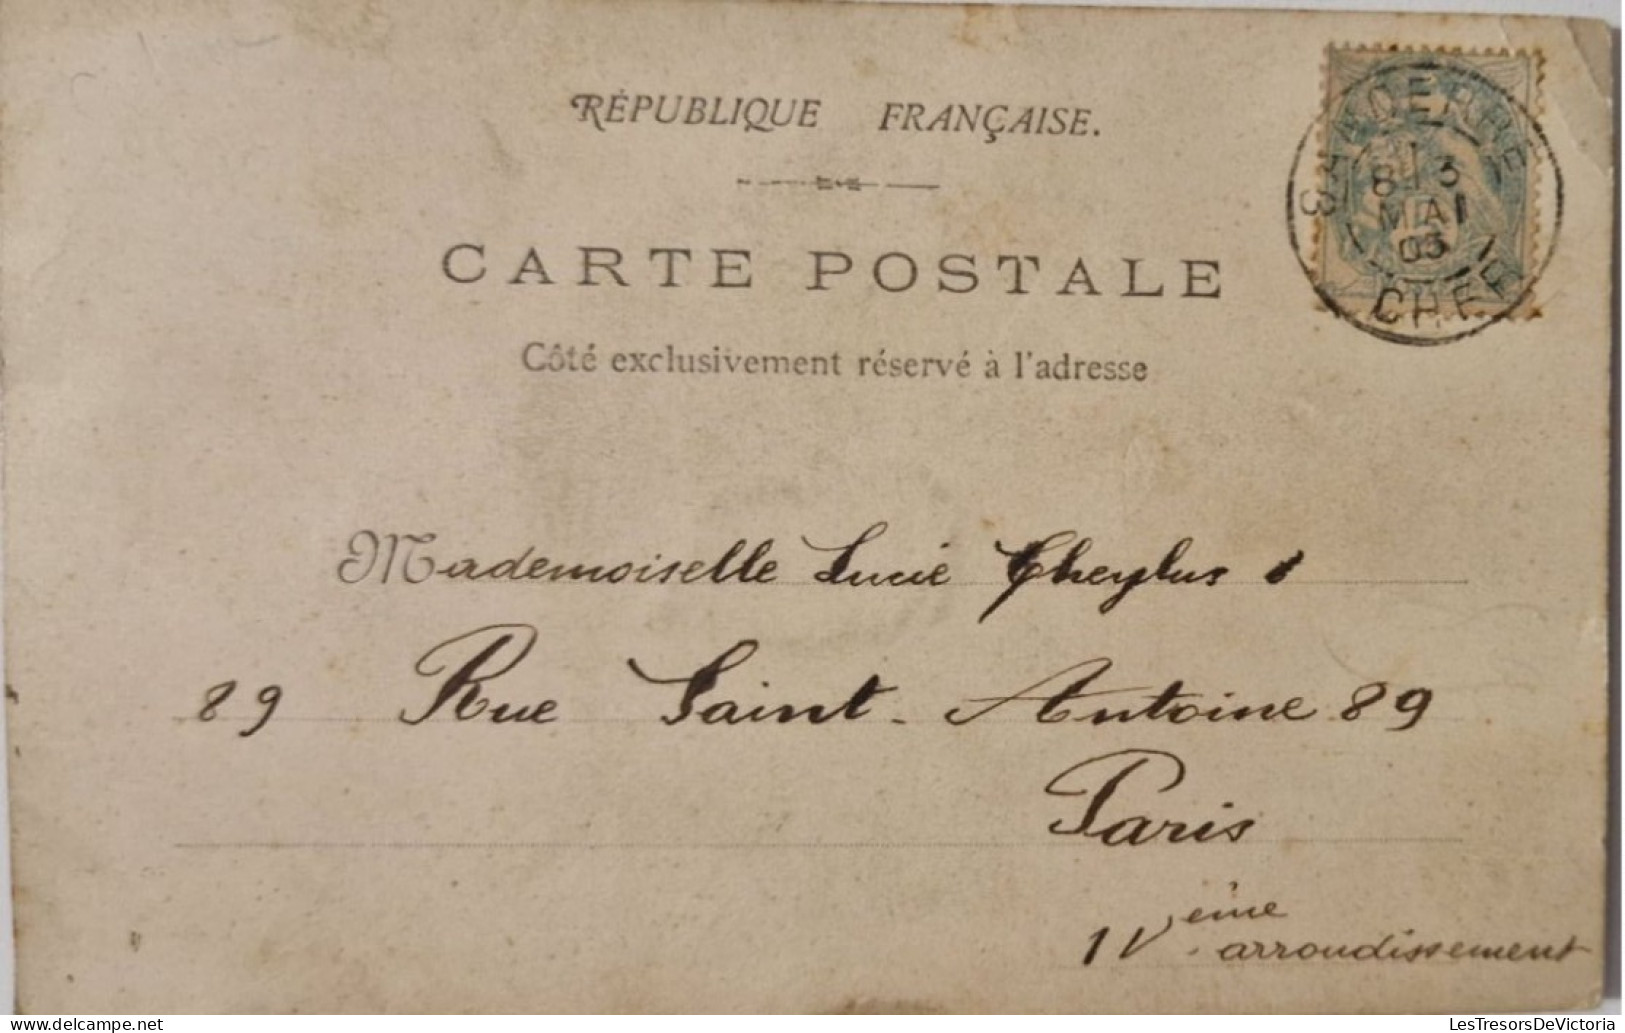 RÉPUBLIQUE FRANÇAISE.
CARTE POSTALE
Côté exclusivement réservé à l'adresse
8 13
MAI
03
CHER
Mademoiselle Lucie Cheylus
89 Rue Saint-Antoine 89
Paris
IVème arrondissement
LesTresorsDeVictoria